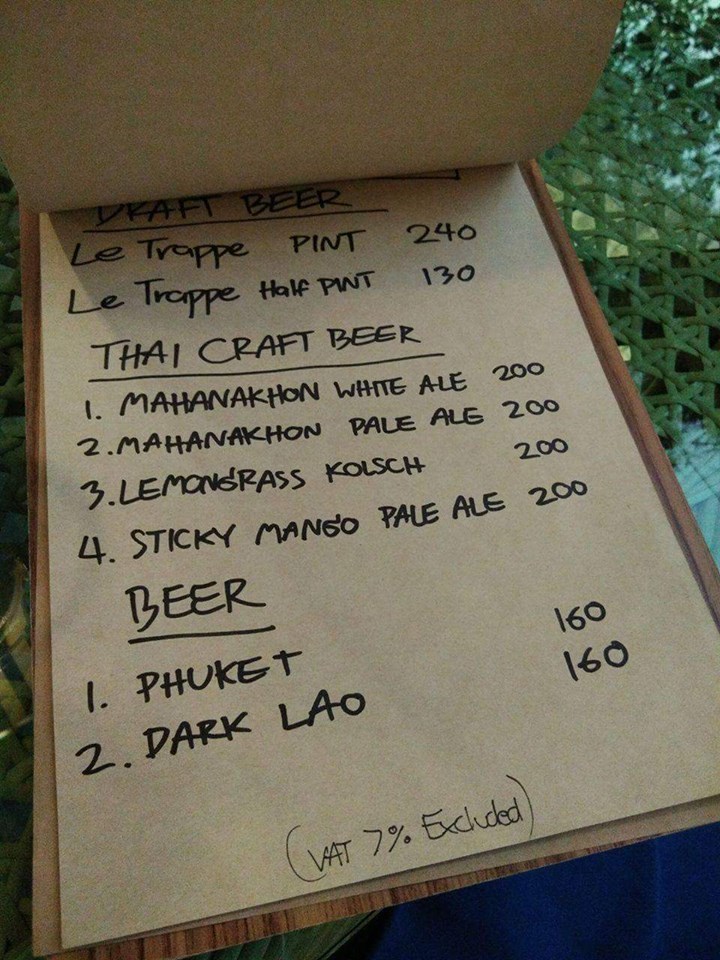 DRAFT BEER
Le Trappe PINT 240
Le Trappe Half PINT 130
THAI CRAFT BEER
1. MAHANAKHON WHITE ALE 200
2. MAHANAKHON PALE ALE 200
3. LEMONGRASS KOLSCH 200
4. STICKY MANGO PALE ALE 200
BEER
1. PHUKET 160
2. DARK LAO 160
(VAT 7% Excluded)